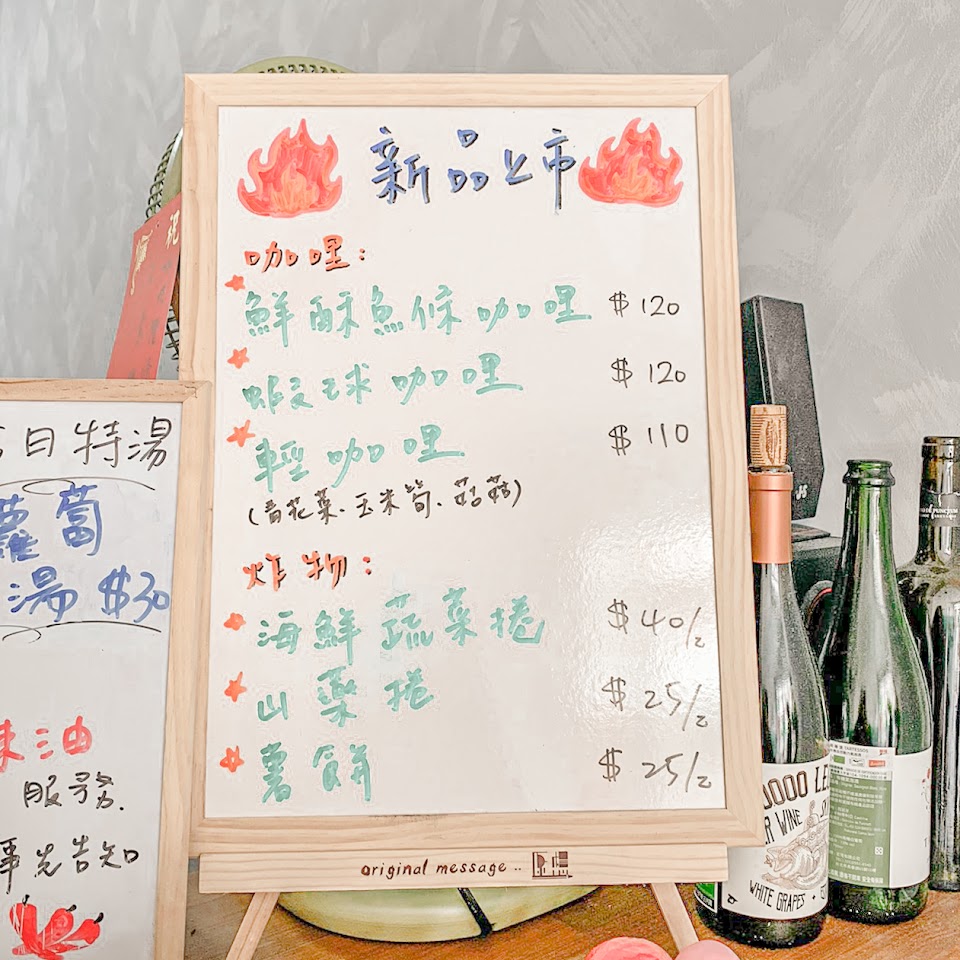 新品上市
咖哩：
鮮酥魚條咖哩 $120
蝦球咖哩 $120
輕咖哩 $110
(青花菜、玉米筍、菇菇)
炸物：
海鮮蔬菜捲 $40/2
山藥捲 $25/2
薯餅 $25/2
original message ..
日特湯
蘿蔔
湯 $30
油
服務.
事先告知
祝
WHITE GRAPES